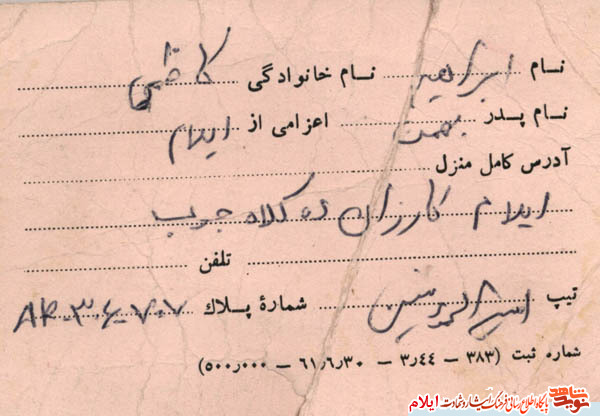 نام ابراهیم نام خانوادگی کاظمی
نام پدر بهمن اعزامی از ایلام
آدرس کامل منزل
ایلام کارزان ده کلاه جوب
تلفن
تیپ امیرالمومنین شمارهٔ پلاک AR-۳۰۶-۷۰۷
شماره ثبت (۳۸۳ – ۳٫۴۴ – ۶۱٫۶٫۳۰ – ۵۰۰٫۰۰۰)
نوید شاهد پایگاه اطلاع رسانی فرهنگ ایثار و شهادت ایلام